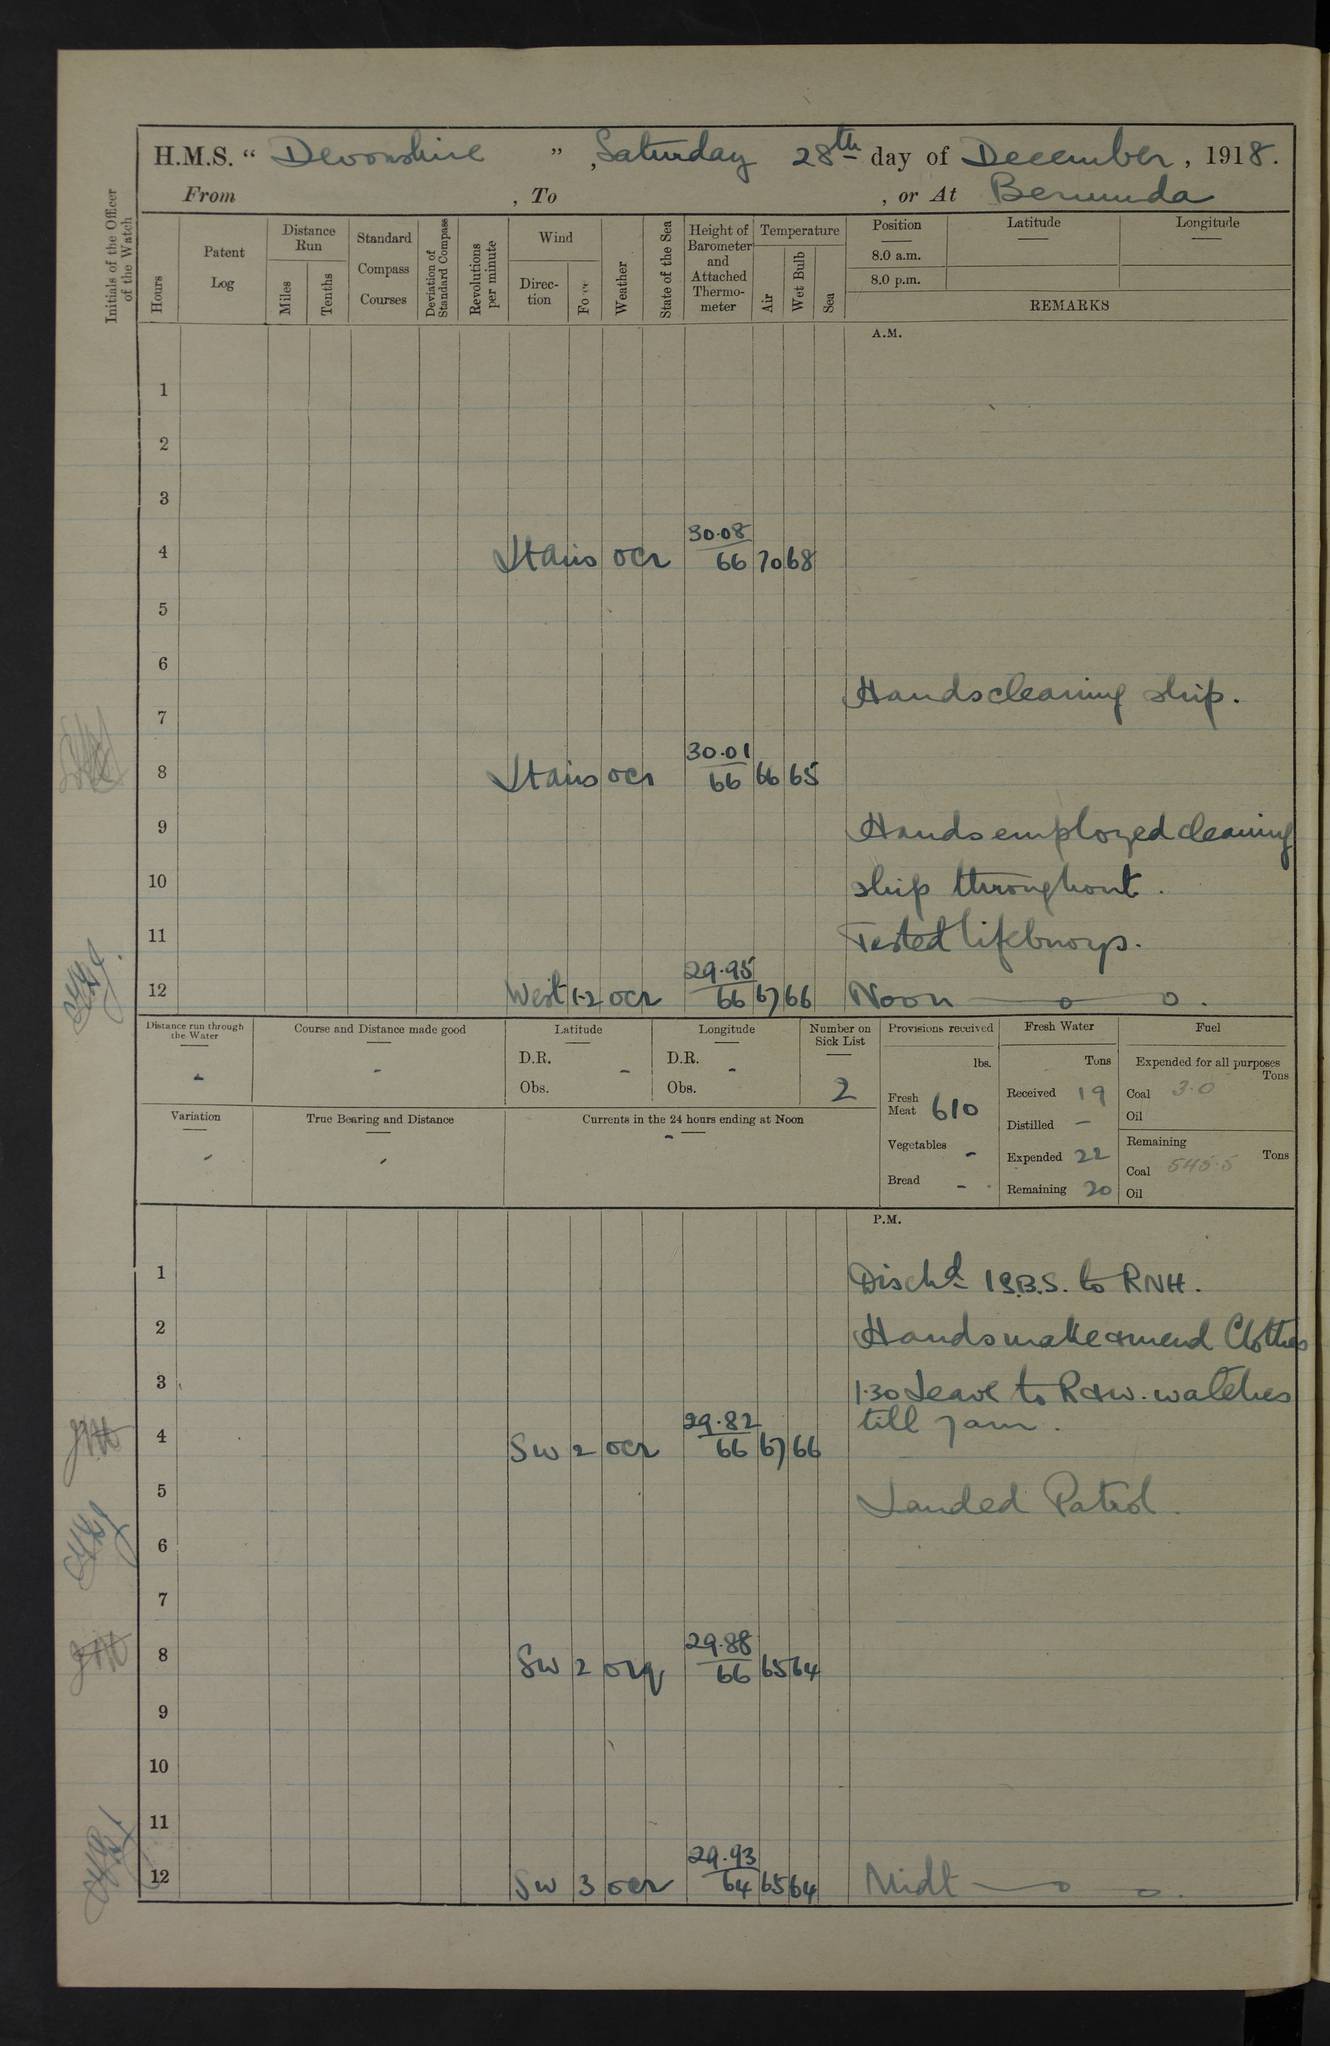 H.M.S. “ Devonshire ” , Saturday 28th day of December , 1918.
From , To , or At Bermuda
Initials of the Officer of the Watch
Hours
Patent Log
Distance Run
Miles
Tenths
Standard Compass Courses
Deviation of Standard Compass
Revolutions per minute
Wind
Direc-tion
Force
Weather
State of the Sea
Height of Barometer and Attached Thermo-meter
Temperature
Air
Wet Bulb
Sea
Position
8.0 a.m.
8.0 p.m.
Latitude
Longitude
REMARKS
A.M.
1
2
3
4 ocr 30.08 66 70 68
5
6
Hands cleaning ship.
7
8 ocr 30.01 66 66 65
9 Hands employed cleaning
10 ship throughout.
11 Tested lifebuoys.
12 West 1-2 ocr 29.95 66 67 66 Noon
Distance run through the Water
-
Course and Distance made good
-
Latitude
D.R. -
Obs.
Longitude
D.R. -
Obs.
Number on Sick List
2
Provisions received
lbs.
Fresh Meat 610
Vegetables -
Bread -
Fresh Water
Tons
Received 19
Distilled -
Expended 22
Remaining 20
Fuel
Expended for all purposes
Tons
Coal 3.0
Oil
Remaining
Tons
Coal 545.5
Oil
Variation
-
True Bearing and Distance
-
Currents in the 24 hours ending at Noon
-
P.M.
1 Dischd 1 S.B.S. to RNH.
2 Hands make & mend Clothes
3 1.30 Leave to R & W. watches
4 SW 2 ocr 29.82 66 67 66 till 7 am.
5 Landed Patrol.
6
7
8 SW 2 orq 29.88 66 65 64
9
10
11
12 SW 3 ocr 29.93 64 65 64 Midt